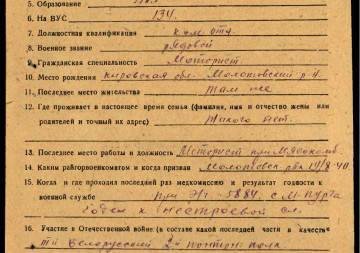 5. Образование
6. На ВУС 134.
7. Должностная квалификация ком. отд.
8. Военное звание рядовой
9. Гражданская специальность Моторист
10. Место рождения Кировская обл. Молотовский р-н
11. Последнее место жительства Там же
12. Где проживает в настоящее время семья (фамилия, имя и отчество жены или
родителей и точный их адрес)
13. Последнее место работы и должность Моторист при
14. Каким райгорвоенкоматом и когда призван Молотовск. рвк 19/8-40
15. Когда и где проходил последний раз медкомиссию и результат годности к
военной службе при ЭГ. 5884. с. М-Пурга
Годен к нестроевой сл.
16. Участие в Отечественной войне (в составе какой последней части и качестве
Белорусский 2й понтон. полк